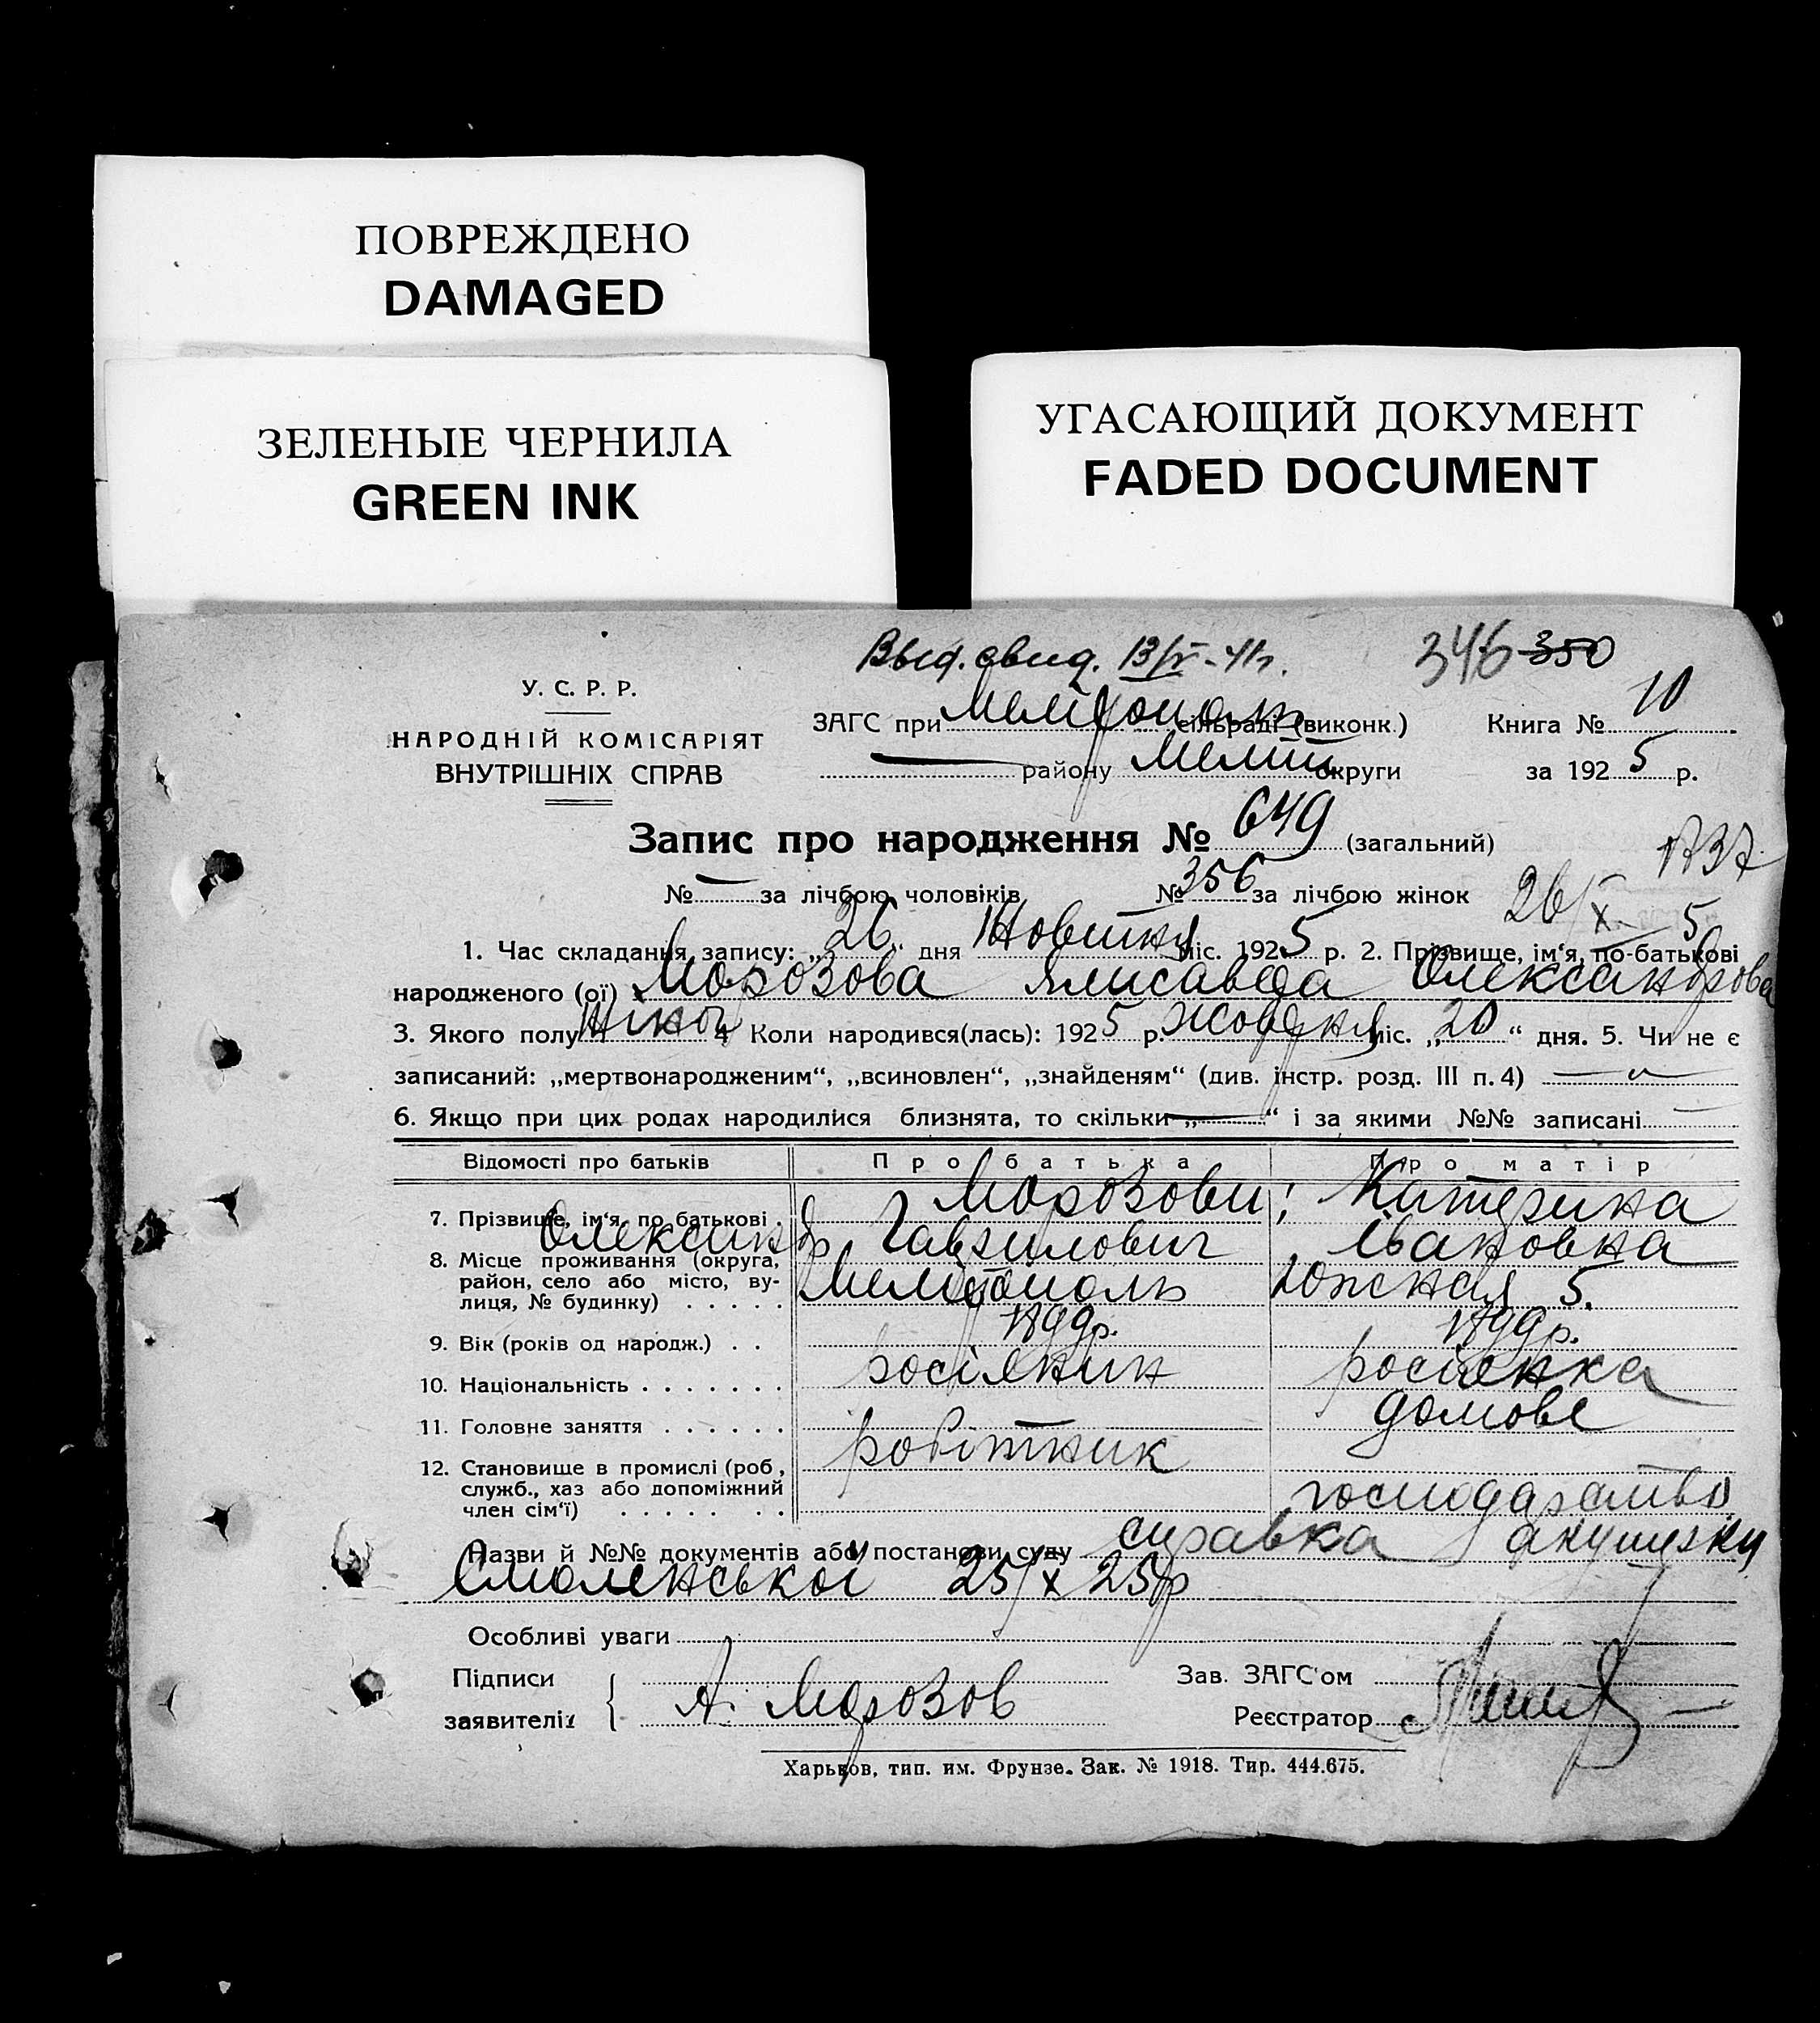 ПОВРЕЖДЕНО
DAMAGED
ЗЕЛЕНЫЕ ЧЕРНИЛА
GREEN INK
УГАСАЮЩИЙ ДОКУМЕНТ
FADED DOCUMENT
Выд. свид. 13/V-41г. 346 350
У. С. Р. Р.
НАРОДНІЙ КОМІСАРІЯТ
ВНУТРІШНІХ СПРАВ
ЗАГС при Мелітополь сільраді (виконк.) Книга № 10
— району Меліт округи за 1925 р.
Запис про народження № 649 (загальний)
№ — за лічбою чоловіків № 356 за лічбою жінок
26/X 5
1. Час складання запису: „26“ дня Жовтня міс. 1925 р. 2. Прізвище, ім‘я, по-батькові
народженого (ої) Морозова Єлисавета Олександрова
3. Якого полу жіноч 4 Коли народився(лась): 1925 р. жовтня міс. „20“ дня. 5. Чи не є
записаний: „мертвонародженим“, „всиновлен“, „знайденям“ (див. інстр. розд. III п. 4) —
6. Якщо при цих родах народилися близнята, то скільки „—“ і за якими №№ записані —
Відомості про батьків Про батька Про матір
7. Прізвище, ім‘я, по батькові . Морозови; Катерина
Олександр Гаврилович Івановна
8. Місце проживання (округа, район, село або місто, ву-
лиця, № будинку) . . . . . Мелітополь Южная 5.
9. Вік (років од народж.) . . 1899р. 1899р.
10. Національність . . . . . . . росіянин росіянка
11. Головне заняття . . . . . . робітник домове
12. Становище в промислі (роб.,
служб., хаз або допоміжний
член сім‘ї) . . . . . . . господарство
Назви й №№ документів або постанови суду справка акушерки
Смоленської 25/X 25р
Особливі уваги
Підписи Зав. ЗАГС‘ом
заявителів { А. Морозов Реєстратор
Харьков, тип. им. Фрунзе. Зак. № 1918. Тир. 444.675.